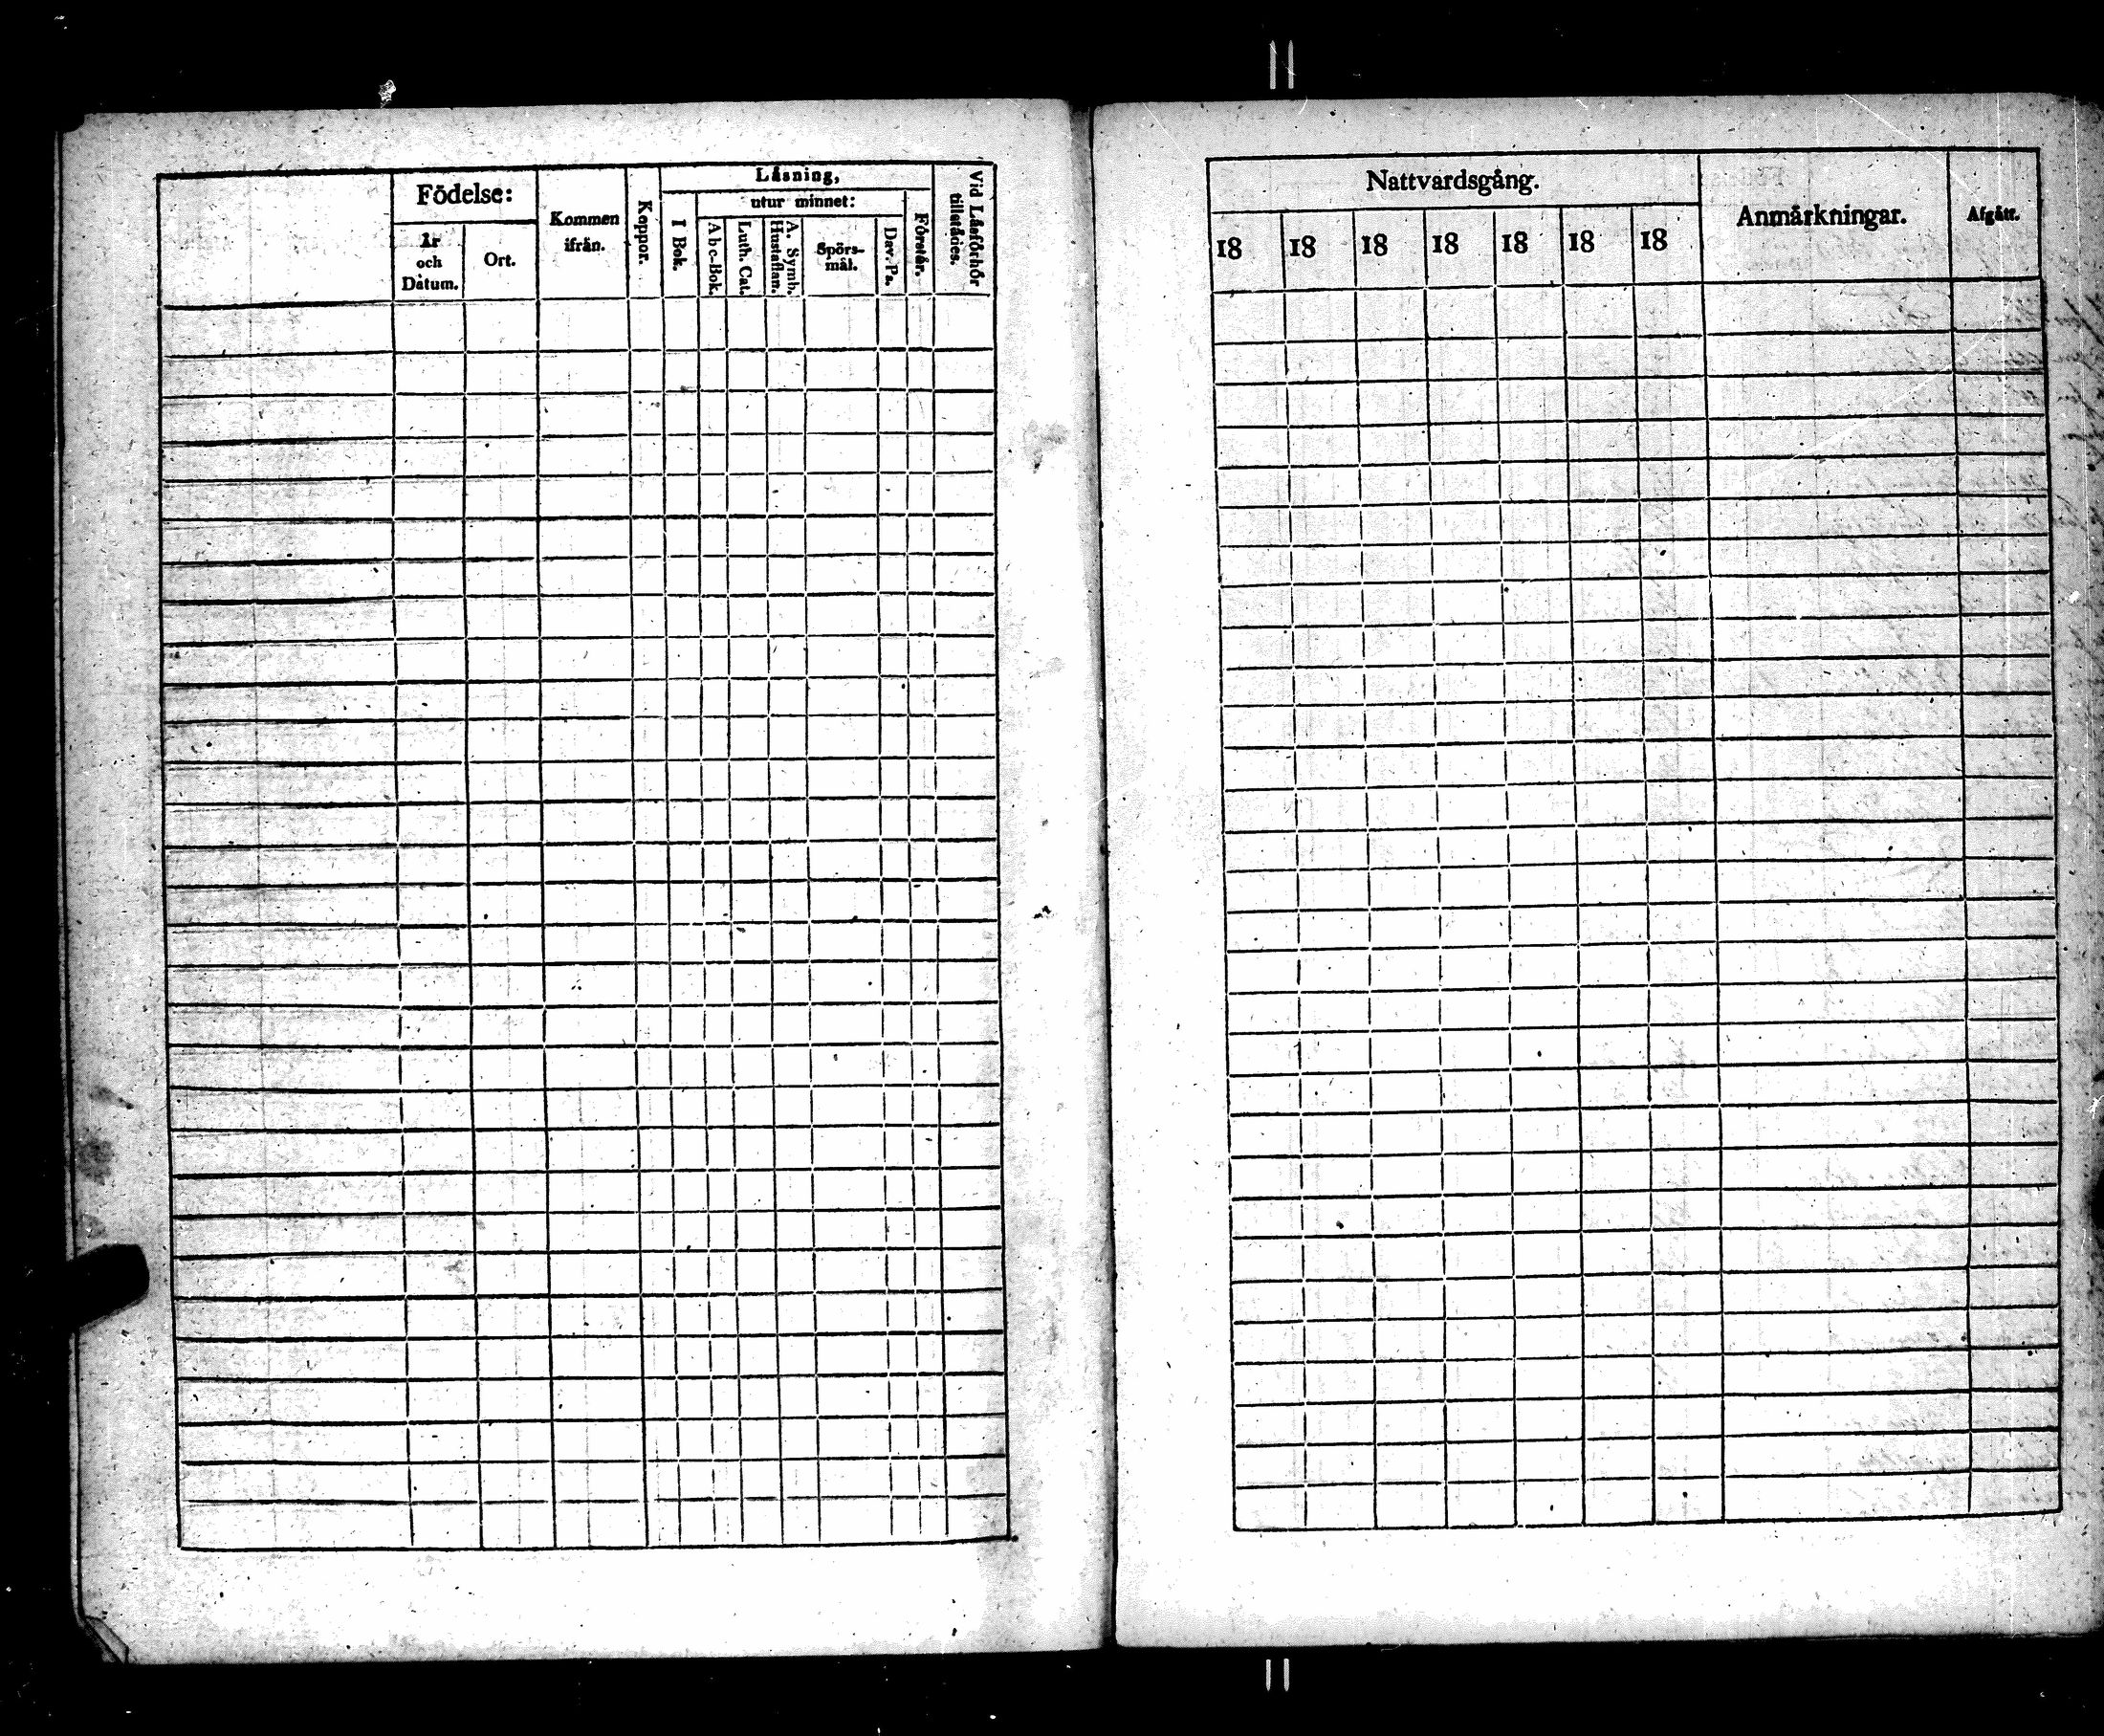 Födelse:
År
och
Dåtum.
Ort.
Kommen
ifrån.
Koppor.
Läsning,
I Bok.
utur minnet:
Abc-Bok.
Luth. Cat.
A. Symb.
Hustaflan.
Spörs-
mål.
Dav. Ps.
Förstår.
Vid Läsförhör
tillstådes.
Nattvardsgång.
18 18 18 18 18 18 18
Anmärkningar.
Afgått.